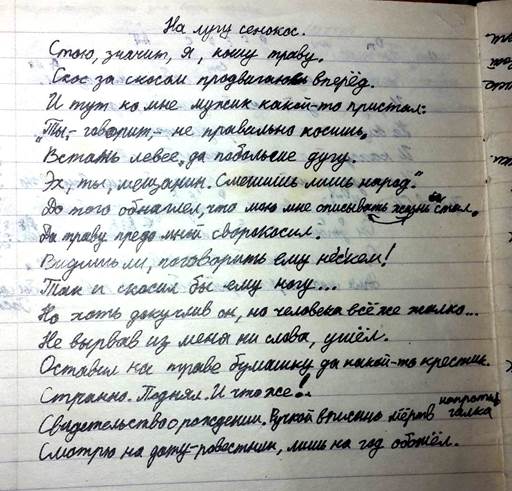 На лугу сенокос.
Стою, значит, я, кошу траву.
Скос за скосом продвигаюсь вперёд.
И тут ко мне мужик какой-то пристал:
"Ты,- говорит,- не правильно косишь,
Встань левее, да побольше дугу.
Эх ты мещанин. Смешишь лишь народ."
До того обнаглел, что мою мне описывать жизнь стал.
Да траву предо мной сворокосил.
Видишь ли, поговорить ему не с кем!
Так и скосил бы ему ногу...
Но хоть докучлив он, но человека всё же жалко...
Не вырвав из меня ни слова, ушёл.
Оставил на траве бумажку да какой-то крестик.
Странно. Поднял. И что же!
напротив
Свидетельство о рождении. Ручкой вписано мёртв галка
Смотрю на дату-ровестник, лишь на год обошёл.